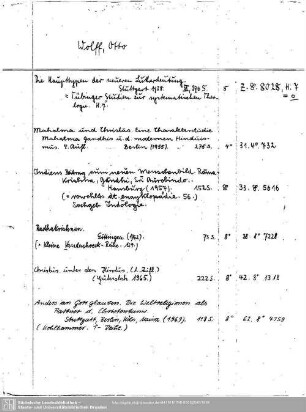 Wolff, Otto
Die Haupttypen der neueren Lutherdeutung.
Stuttgart 1938. 396 S. 8° Z. 8. 8028, H. 7
= Tübinger Studien zur systematischen Theologie H. 7.
Mahatma und Christus. Eine Charakterstudie
Mahatma Gandhis u. d. modernen Hinduismus.
Berlin (1955). 275 S. 8° 31. 8° 732
Indiens Beitrag zum neuen Menschenbild. Ramakrishna,
Gandhi, Sri Aurobindo.
Hamburg (1957). 152 S. 8° 33. 8° 5616
= rowohlts dt. enzyklopädie 56.
Sachgeb. Indologie.
Radhakrishnan.
Göttingen (1962). 8°
= Kleine Vandenhoeck-Reihe.
Christus unter den Hindus.
(Gütersloh 1965). 222 S. 8° 42. 8° 1313
Anders an Gott glauben. Die Weltreligionen als
Partner d. Christentums.
Stuttgart, Berlin, Köln, Mainz (1969). 118 S. 8° 62. 8° 4759
(Kohlhammer